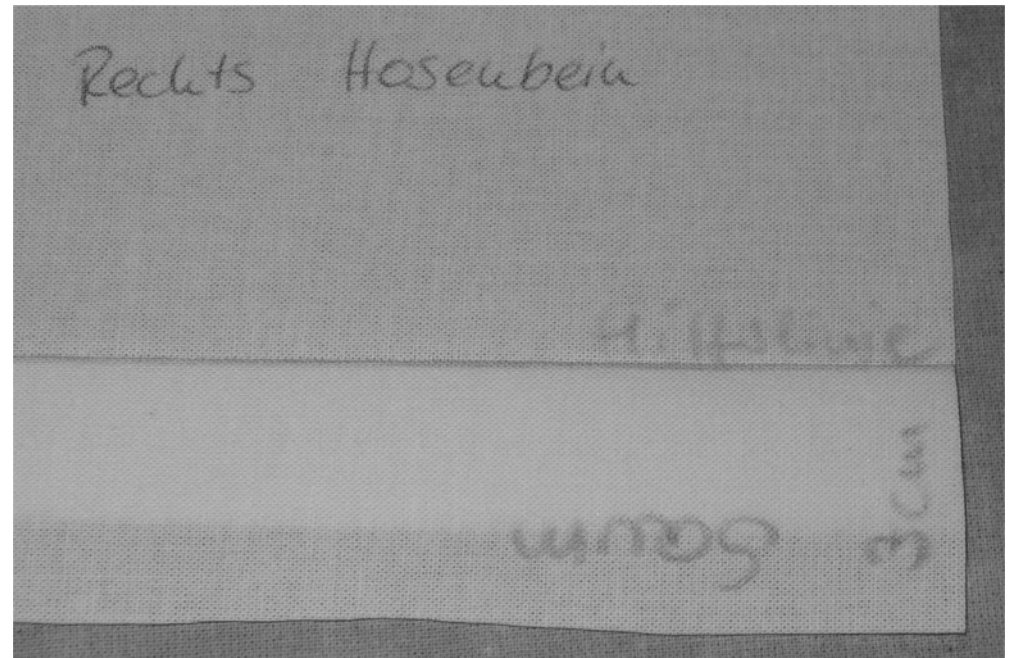 Rechts Hosenbein
Hilfslinie
3 cm
Saum